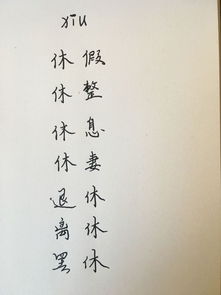 xiū
休假
休整
休息
休妻
退休
离休
罢休